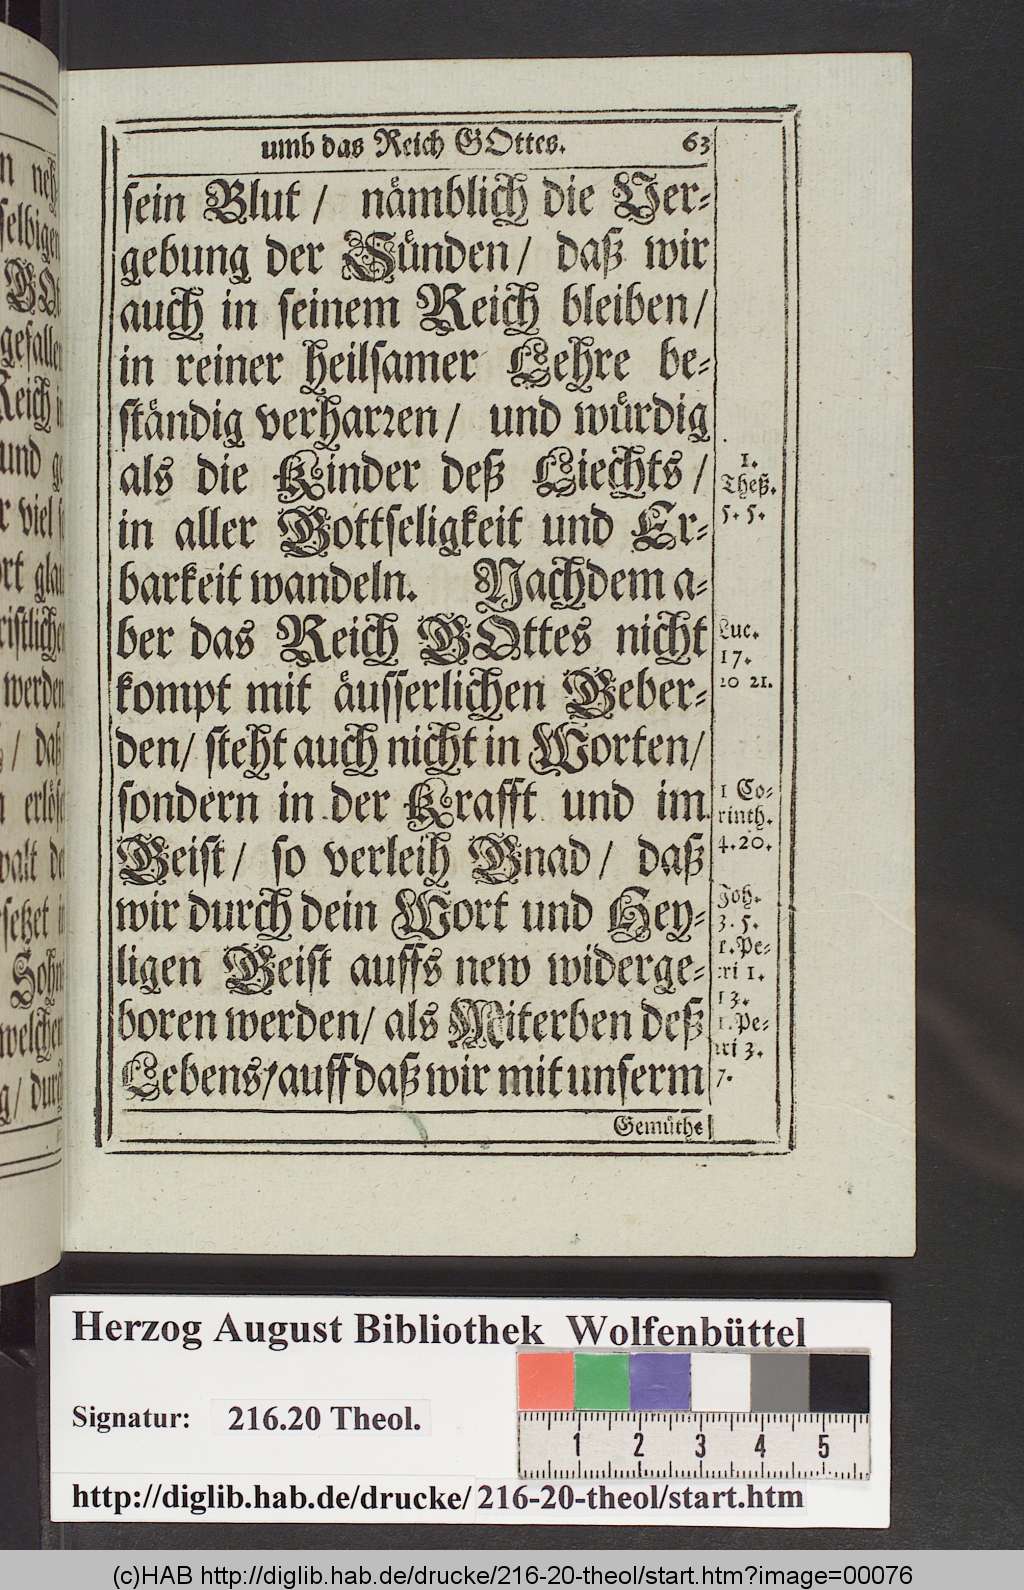 umb das Reich GOttes. 63
sein Blut / nämblich die Ver-
gebung der Sünden / daß wir
auch in seinem Reich bleiben /
in reiner heilsamer Lehre be-
ständig verharren / und würdig
als die Kinder deß Liechts /
in aller Gottseligkeit und Er-
barkeit wandeln. Nachdem a-
ber das Reich GOttes nicht
kompt mit äusserlichen Geber-
den / steht auch nicht in Worten /
sondern in der Krafft und im
Geist / so verleih Gnad / daß
wir durch dein Wort und Hey-
ligen Geist auffs new widerge-
boren werden / als Miterben deß
Lebens / auff daß wir mit unserm
Gemüthe
1.
Theß.
5. 5.
Luc.
17.
20 21.
1 Co-
rinth.
4. 20.
Joh.
3. 5.
1. Pe-
tri 1.
13.
1. Pe-
tri 3.
7.
selbigen
gefallen
Reich
und
viel
werden
Sohn
welchen
Herzog August Bibliothek Wolfenbüttel
Signatur: 216.20 Theol.
1 2 3 4 5
http://diglib.hab.de/drucke/216-20-theol/start.htm
(c)HAB http://diglib.hab.de/drucke/216-20-theol/start.htm?image=00076